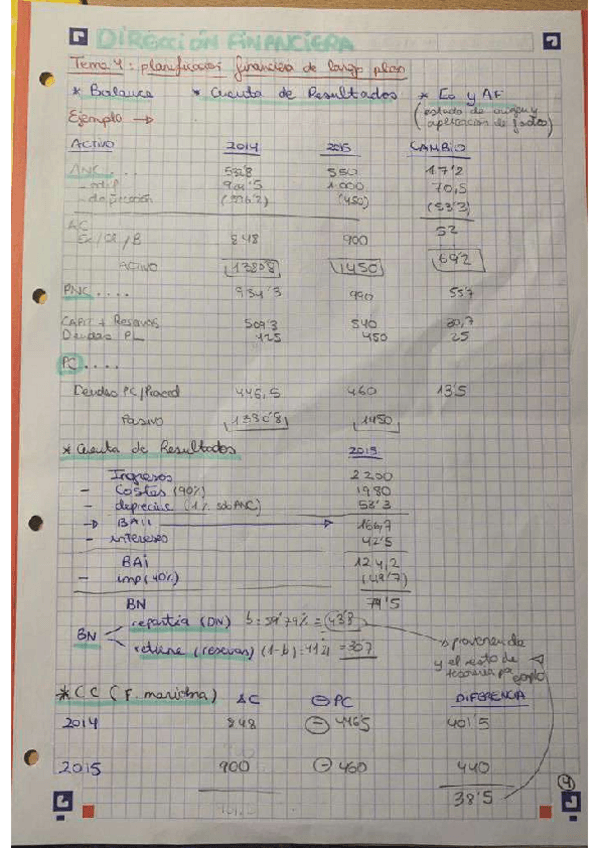 DIRECCIÓN FINANCIERA
Tema 4: planificacion financiera de largo plazo
* Balance * Cuenta de Resultados * Eo y AF
Ejemplo → (estado de origen y aplicación de fondos)
ACTIVO 2014 2015 CAMBIO
ANC.... 532'8 550 17'2
1.000 70,5
(450) (53'3)
AC 52
848 900
ACTIVO 1380'8 1450 69'2
PNC.... 934'3 990 55,7
CAPIT + Reservas 509'3 540 30,7
Deudas PL 425 450 25
PC....
Deudas PC/Proveed 446,5 460 13'5
Pasivo 1380'8 1450
* Cuenta de Resultados 2015
Ingresos 2200
- Costes (90%) 1980
- depreciac 53'3
→ BAII → 166,7
- intereses 42'5
BAI 124,2
- imp (40%) (49'7)
BN 74'5
BN
repartía (DN) = (43'8
retiene (reservas) (1-b) = 30'7
y el resto de
* CC (F. maniobra) AC ⊖ PC DIFERENCIA
2014 848 ⊖ 446'5 401'5
2015 900 ⊖ 460 440
38'5
4